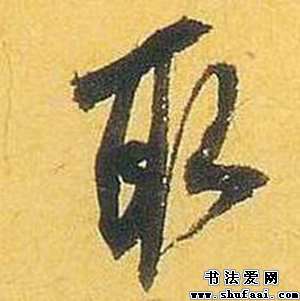 取
书法爱网
www.shufaai.com